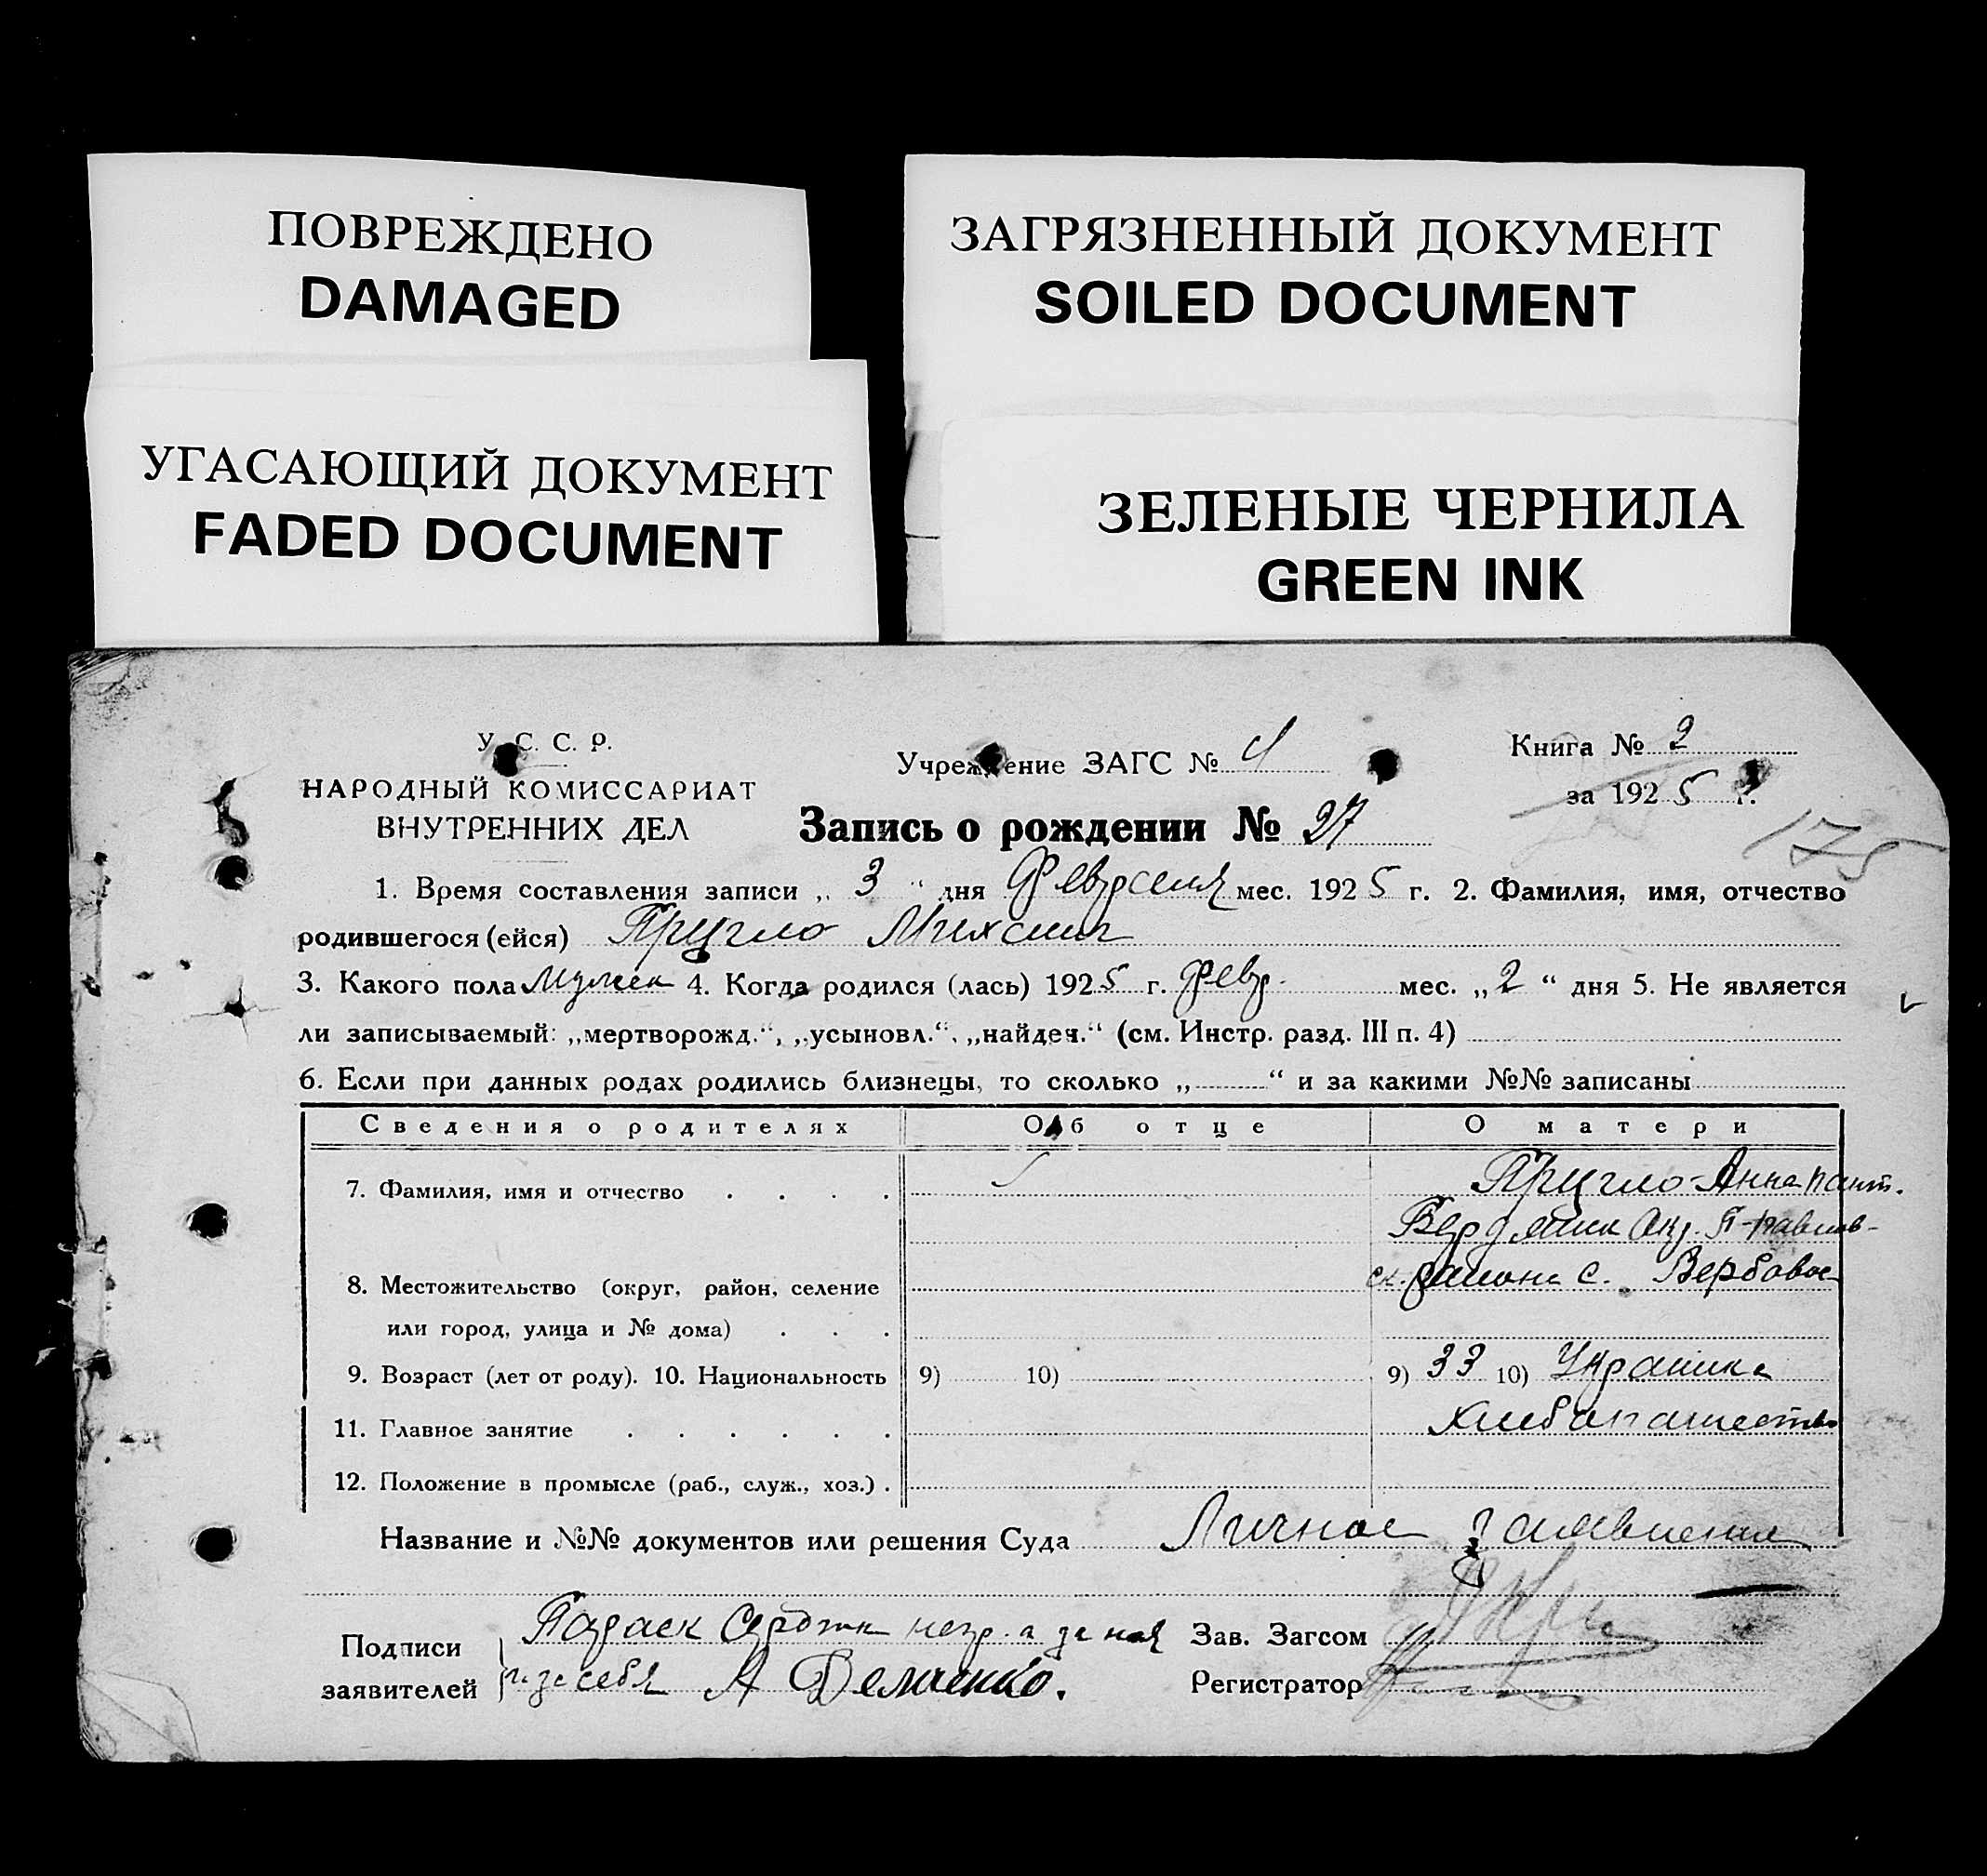 ПОВРЕЖДЕНО
DAMAGED
ЗАГРЯЗНЕННЫЙ ДОКУМЕНТ
SOILED DOCUMENT
УГАСАЮЩИЙ ДОКУМЕНТ
FADED DOCUMENT
ЗЕЛЕНЫЕ ЧЕРНИЛА
GREEN INK
У. С. С. Р.
НАРОДНЫЙ КОМИССАРИАТ
ВНУТРЕННИХ ДЕЛ
Учреждение ЗАГС № 4
Книга № 2
за 1925 г.
175
Запись о рождении № 27
1. Время составления записи „ 3 “ дня Февраля мес. 1925 г. 2. Фамилия, имя, отчество
родившегося (ейся) Пругло Михаил
3. Какого пола мужск 4. Когда родился (лась) 1925 г. Февр. мес. „ 2 “ дня 5. Не является
ли записываемый: „мертворожд.“, „усыновл.“, „найден.“ (см. Инстр. разд. III п. 4)
6. Если при данных родах родились близнецы, то сколько „ “ и за какими №№ записаны
Сведения о родителях Об отце О матери
7. Фамилия, имя и отчество Пругло Анна пант.
Бердянск Окр. П-павлов-
8. Местожительство (округ, район, селение ск. района с. Вербовое
или город, улица и № дома)
9. Возраст (лет от роду). 10. Национальность 9) 10) 9) 33 10) Украинка
11. Главное занятие Хлебопашество
12. Положение в промысле (раб., служ., хоз.)
Название и №№ документов или решения Суда Личное заявление
Подписи Параск негр. а за неё Зав. Загсом
заявителей и за себя А Демченко. Регистратор